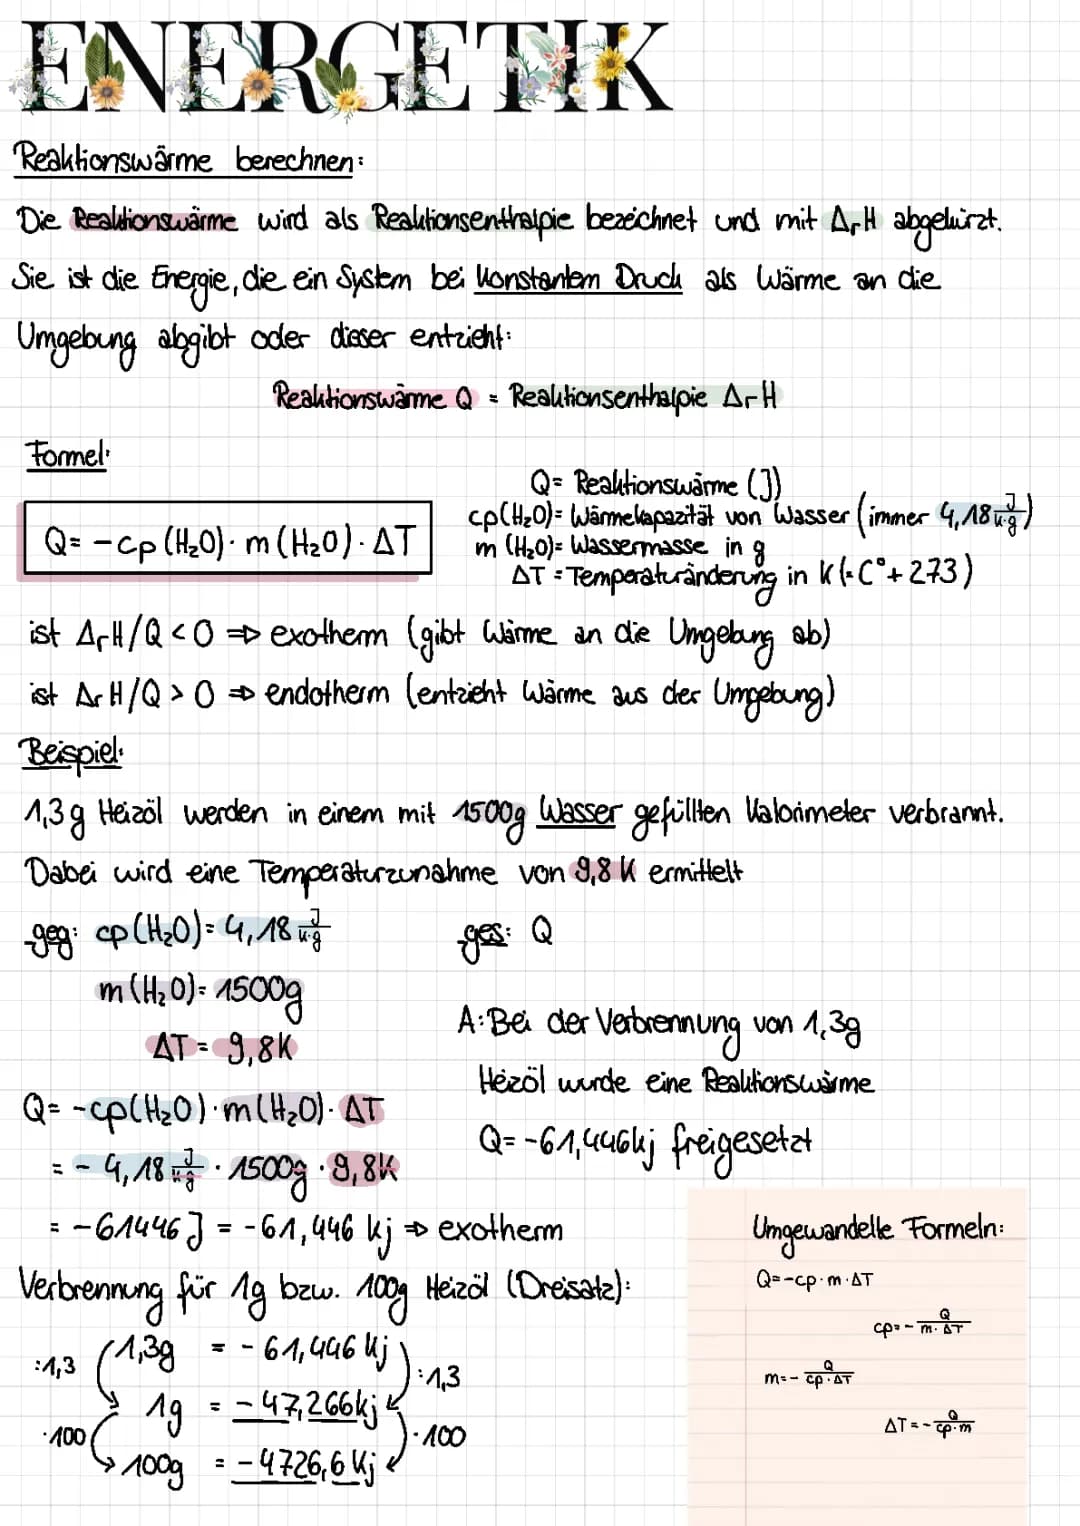 ENERGETIK
Reaktionswärme berechnen:
Die Reaktionswärme wird als Reaktionsenthalpie bezeichnet und mit ΔrH abgekürzt.
Sie ist die Energie, die ein System bei konstantem Druck als Wärme an die
Umgebung abgibt oder dieser entzieht:
Reaktionswärme Q = Reaktionsenthalpie ΔrH
Formel:
Q = -cp (H₂O) · m (H₂O) · ΔT
Q = Reaktionswärme (J)
cp(H₂O) = Wärmekapazität von Wasser (immer 4,18 J/K·g)
m (H₂O) = Wassermasse in g
ΔT = Temperaturänderung in K (= C° + 273)
ist ΔrH/Q < 0 ⇒ exotherm (gibt Wärme an die Umgebung ab)
ist ΔrH/Q > 0 ⇒ endotherm (entzieht Wärme aus der Umgebung)
Beispiel:
1,3g Heizöl werden in einem mit 1500g Wasser gefüllten Kalorimeter verbrannt.
Dabei wird eine Temperaturzunahme von 9,8K ermittelt
geg: cp(H₂O) = 4,18 J/K·g
m(H₂O) = 1500g
ΔT = 9,8K
ges: Q
Q = -cp(H₂O) · m(H₂O) · ΔT
= - 4,18 J/K·g · 1500g · 9,8K
= -61446 J = -61,446 kj ⇒ exotherm
A: Bei der Verbrennung von 1,3g
Heizöl wurde eine Reaktionswärme
Q = -61,446kj freigesetzt
Verbrennung für 1g bzw. 100g Heizöl (Dreisatz):
:1,3 1,3g = - 61,446 kj :1,3
1g = - 47,266kj
·100 ·100
100g = - 4726,6 kj
Umgewandelte Formeln:
Q = -cp · m · ΔT
cp = - Q/m · ΔT
m = - Q/cp · ΔT
ΔT = - Q/cp · m